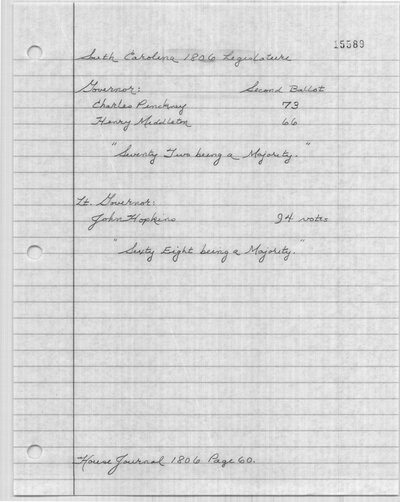 15589
South Carolina 1806 Legislature
Governor: Second Ballot
Charles Pinckney 73
Henry Middleton 66
"Seventy Two being a Majority."
Lt. Governor:
John Hopkins 94 votes
"Sixty Eight being a Majority."
House Journal 1806 Page 60.